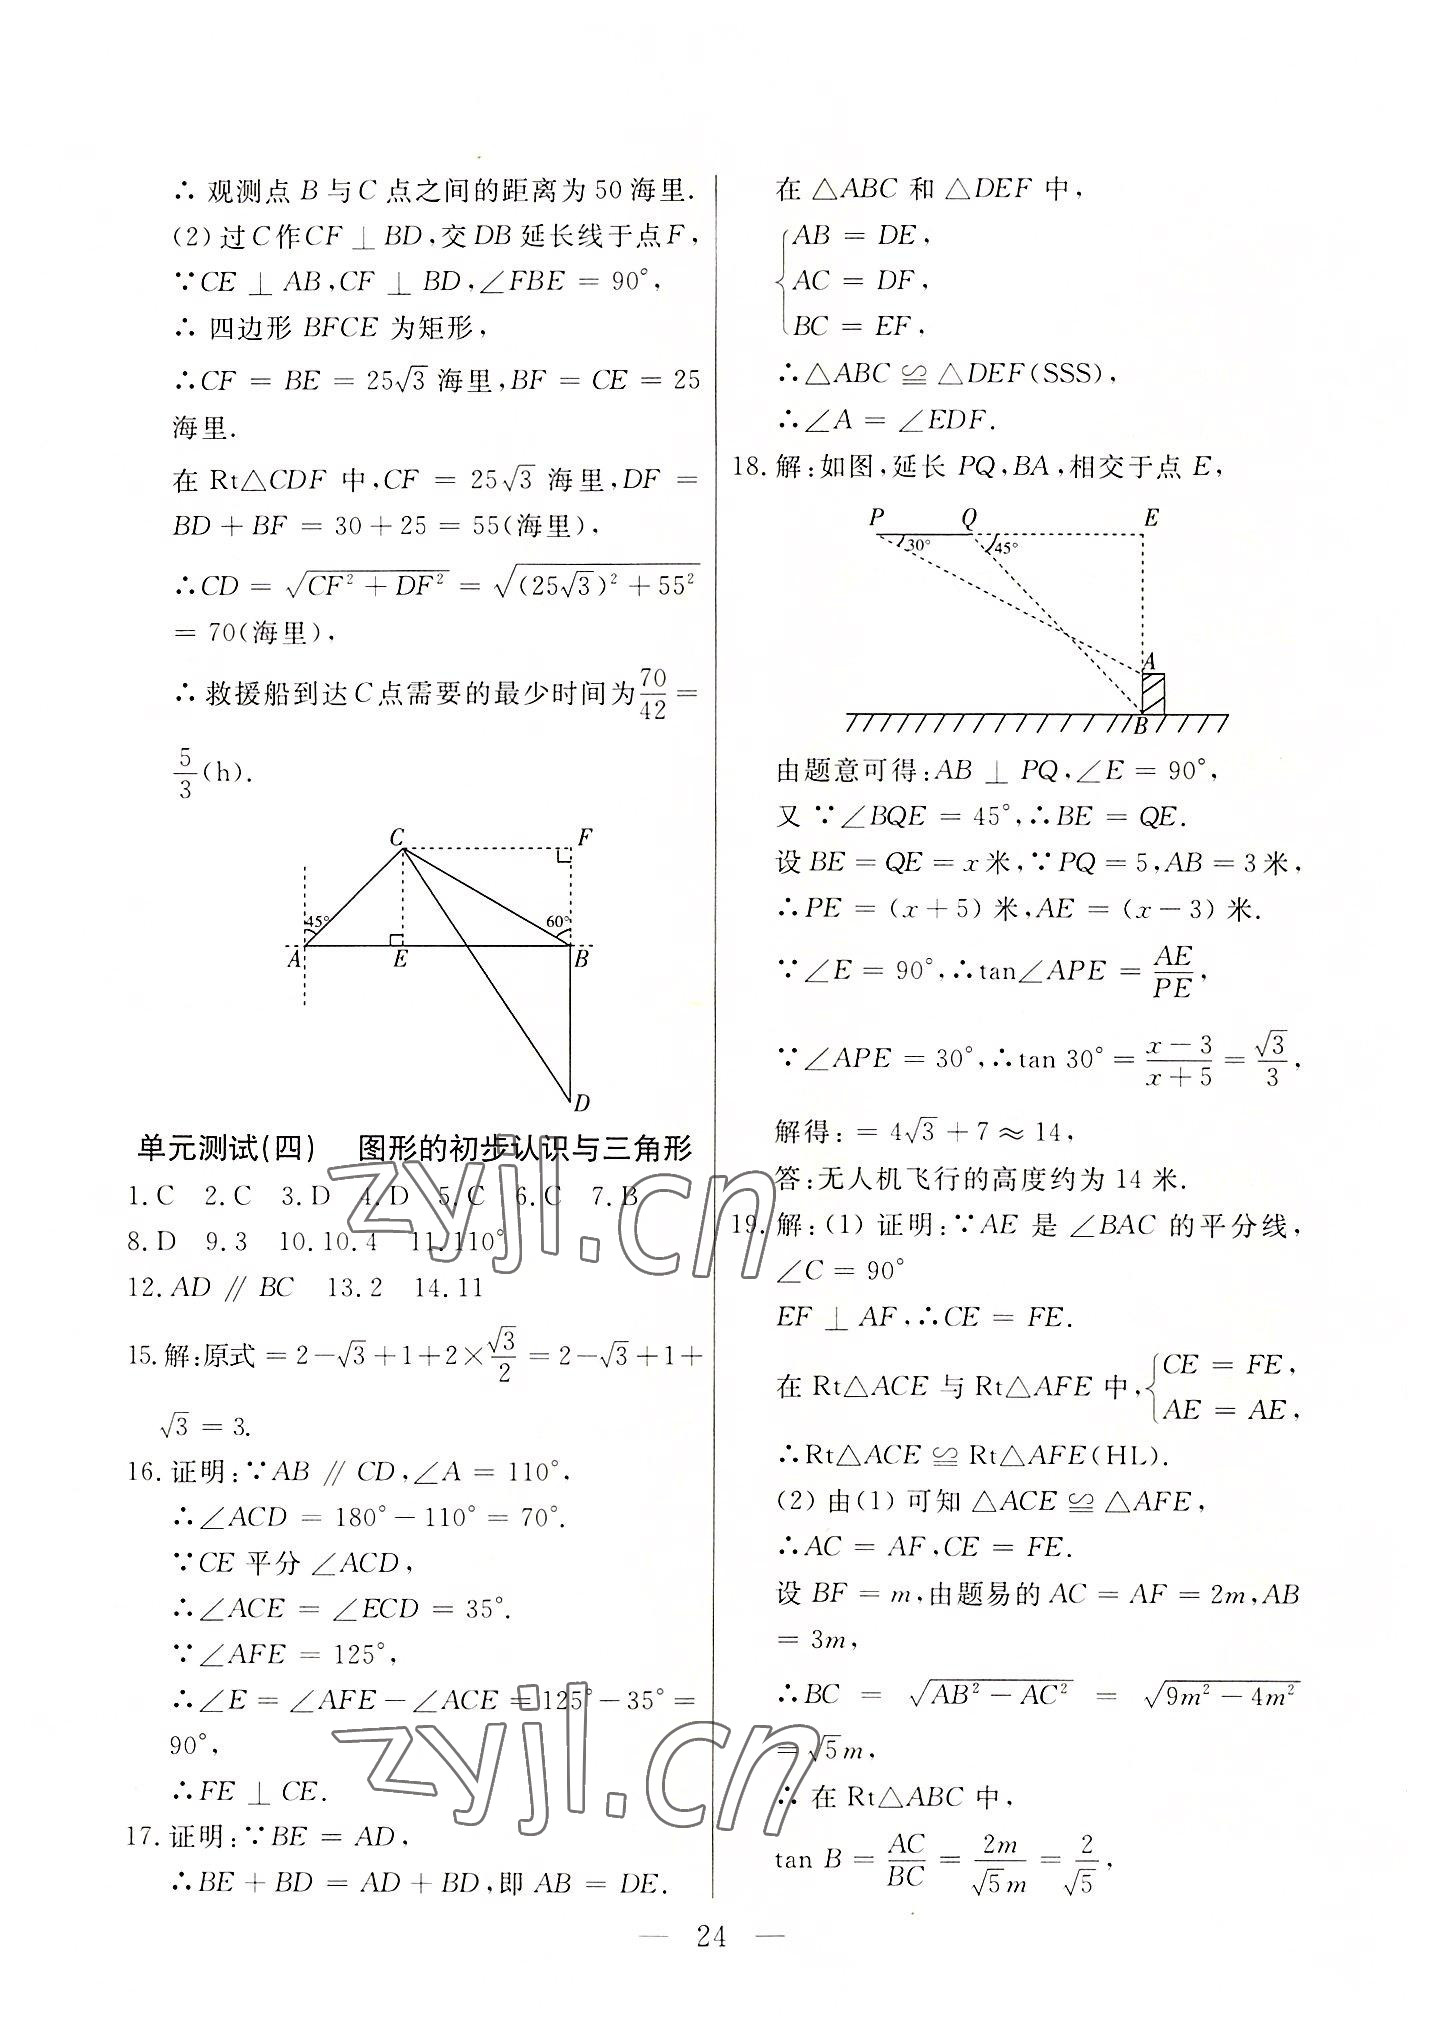 ∴ 观测点 B 与 C 点之间的距离为 50 海里.
(2) 过 C 作 CF ⊥ BD, 交 DB 延长线于点 F,
∵ CE ⊥ AB, CF ⊥ BD, ∠FBE = 90°,
∴ 四边形 BFCE 为矩形,
∴ CF = BE = 25√3 海里, BF = CE = 25
海里.
在 Rt△CDF 中, CF = 25√3 海里, DF =
BD + BF = 30 + 25 = 55(海里),
∴ CD = √(CF² + DF²) = √((25√3)² + 55²)
= 70(海里),
∴ 救援船到达 C 点需要的最少时间为 70/42 =
5/3 (h).
C F
45° 60°
A E B
D
单元测试(四) 图形的初步认识与三角形
1. C 2. C 3. D 4. D 5. C 6. C 7. B
8. D 9. 3 10. 10.4 11. 110°
12. AD ∥ BC 13. 2 14. 11
15. 解:原式 = 2 − √3 + 1 + 2 × √3/2 = 2 − √3 + 1 +
√3 = 3.
16. 证明:∵ AB ∥ CD, ∠A = 110°,
∴ ∠ACD = 180° − 110° = 70°.
∵ CE 平分 ∠ACD,
∴ ∠ACE = ∠ECD = 35°.
∵ ∠AFE = 125°,
∴ ∠E = ∠AFE − ∠ACE = 125° − 35° =
90°,
∴ FE ⊥ CE.
17. 证明:∵ BE = AD,
∴ BE + BD = AD + BD, 即 AB = DE.
在 △ABC 和 △DEF 中,
AB = DE,
AC = DF,
BC = EF,
∴ △ABC ≌ △DEF(SSS),
∴ ∠A = ∠EDF.
18. 解:如图, 延长 PQ, BA, 相交于点 E,
P Q E
30° 45°
A
B
由题意可得: AB ⊥ PQ, ∠E = 90°,
又 ∵ ∠BQE = 45°, ∴ BE = QE.
设 BE = QE = x 米, ∵ PQ = 5, AB = 3 米,
∴ PE = (x + 5) 米, AE = (x − 3) 米.
∵ ∠E = 90°, ∴ tan∠APE = AE/PE,
∵ ∠APE = 30°, ∴ tan 30° = (x − 3)/(x + 5) = √3/3,
解得: = 4√3 + 7 ≈ 14,
答:无人机飞行的高度约为 14 米.
19. 解:(1) 证明:∵ AE 是 ∠BAC 的平分线,
∠C = 90°
EF ⊥ AF, ∴ CE = FE.
在 Rt△ACE 与 Rt△AFE 中, { CE = FE,
AE = AE,
∴ Rt△ACE ≌ Rt△AFE(HL).
(2) 由(1) 可知 △ACE ≌ △AFE,
∴ AC = AF, CE = FE.
设 BF = m, 由题易的 AC = AF = 2m, AB
= 3m,
∴ BC = √(AB² − AC²) = √(9m² − 4m²)
= √5 m,
∴ 在 Rt△ABC 中,
tan B = AC/BC = 2m/(√5 m) = 2/√5,
zyjl.cn
zyjl.cn
— 24 —